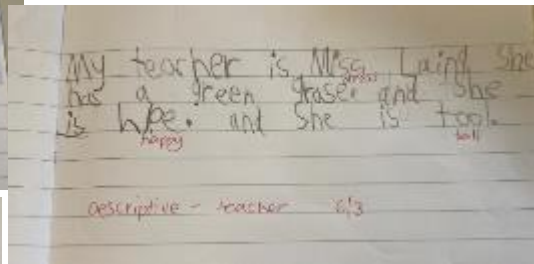 My teacher is Miss Laing She
has a green grase. and she
dress
is hpe. and she is tool.
happy tall
descriptive - teacher 6/3